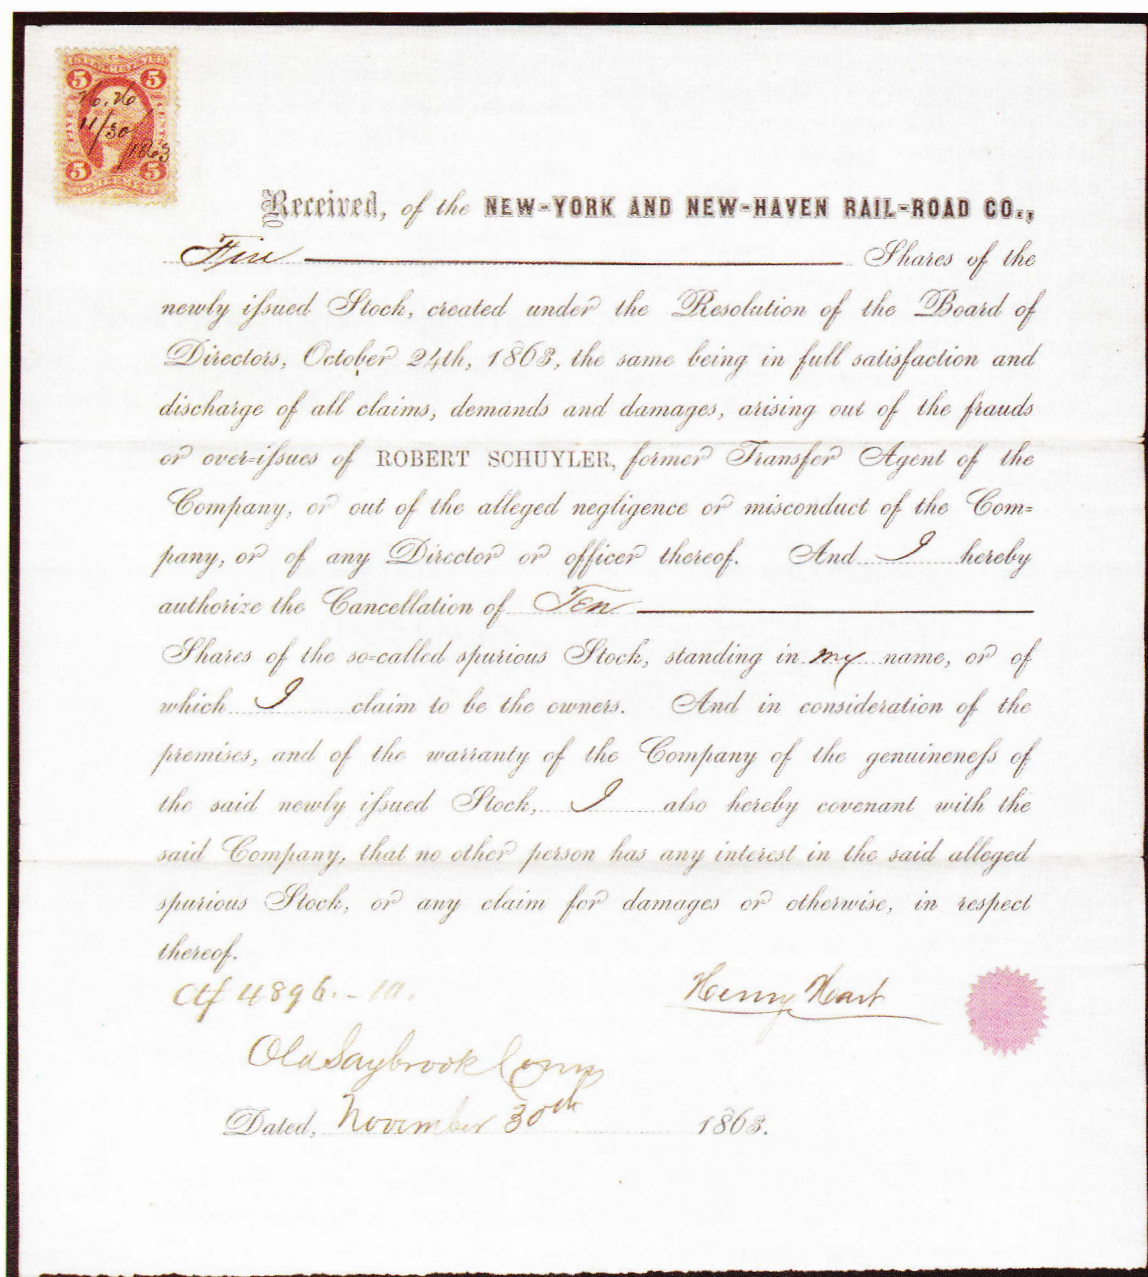 INTER. REVENUE
5 5
H. H.
11/30
1863
FIVE CENTS
5 5
AGREEMENT
Received, of the NEW-YORK AND NEW-HAVEN RAIL-ROAD CO.,
Five Shares of the
newly issued Stock, created under the Resolution of the Board of
Directors, October 24th, 1863, the same being in full satisfaction and
discharge of all claims, demands and damages, arising out of the frauds
or over=issues of ROBERT SCHUYLER, former Transfer Agent of the
Company, or out of the alleged negligence or misconduct of the Com=
pany, or of any Director or officer thereof. And I hereby
authorize the Cancellation of Ten
Shares of the so=called spurious Stock, standing in my name, or of
which I claim to be the owners. And in consideration of the
premises, and of the warranty of the Company of the genuineness of
the said newly issued Stock, I also hereby covenant with the
said Company, that no other person has any interest in the said alleged
spurious Stock, or any claim for damages or otherwise, in respect
thereof.
Ctf 4896.-10.
Henry Hart
Old Saybrook Conn
Dated, November 30th 1863.